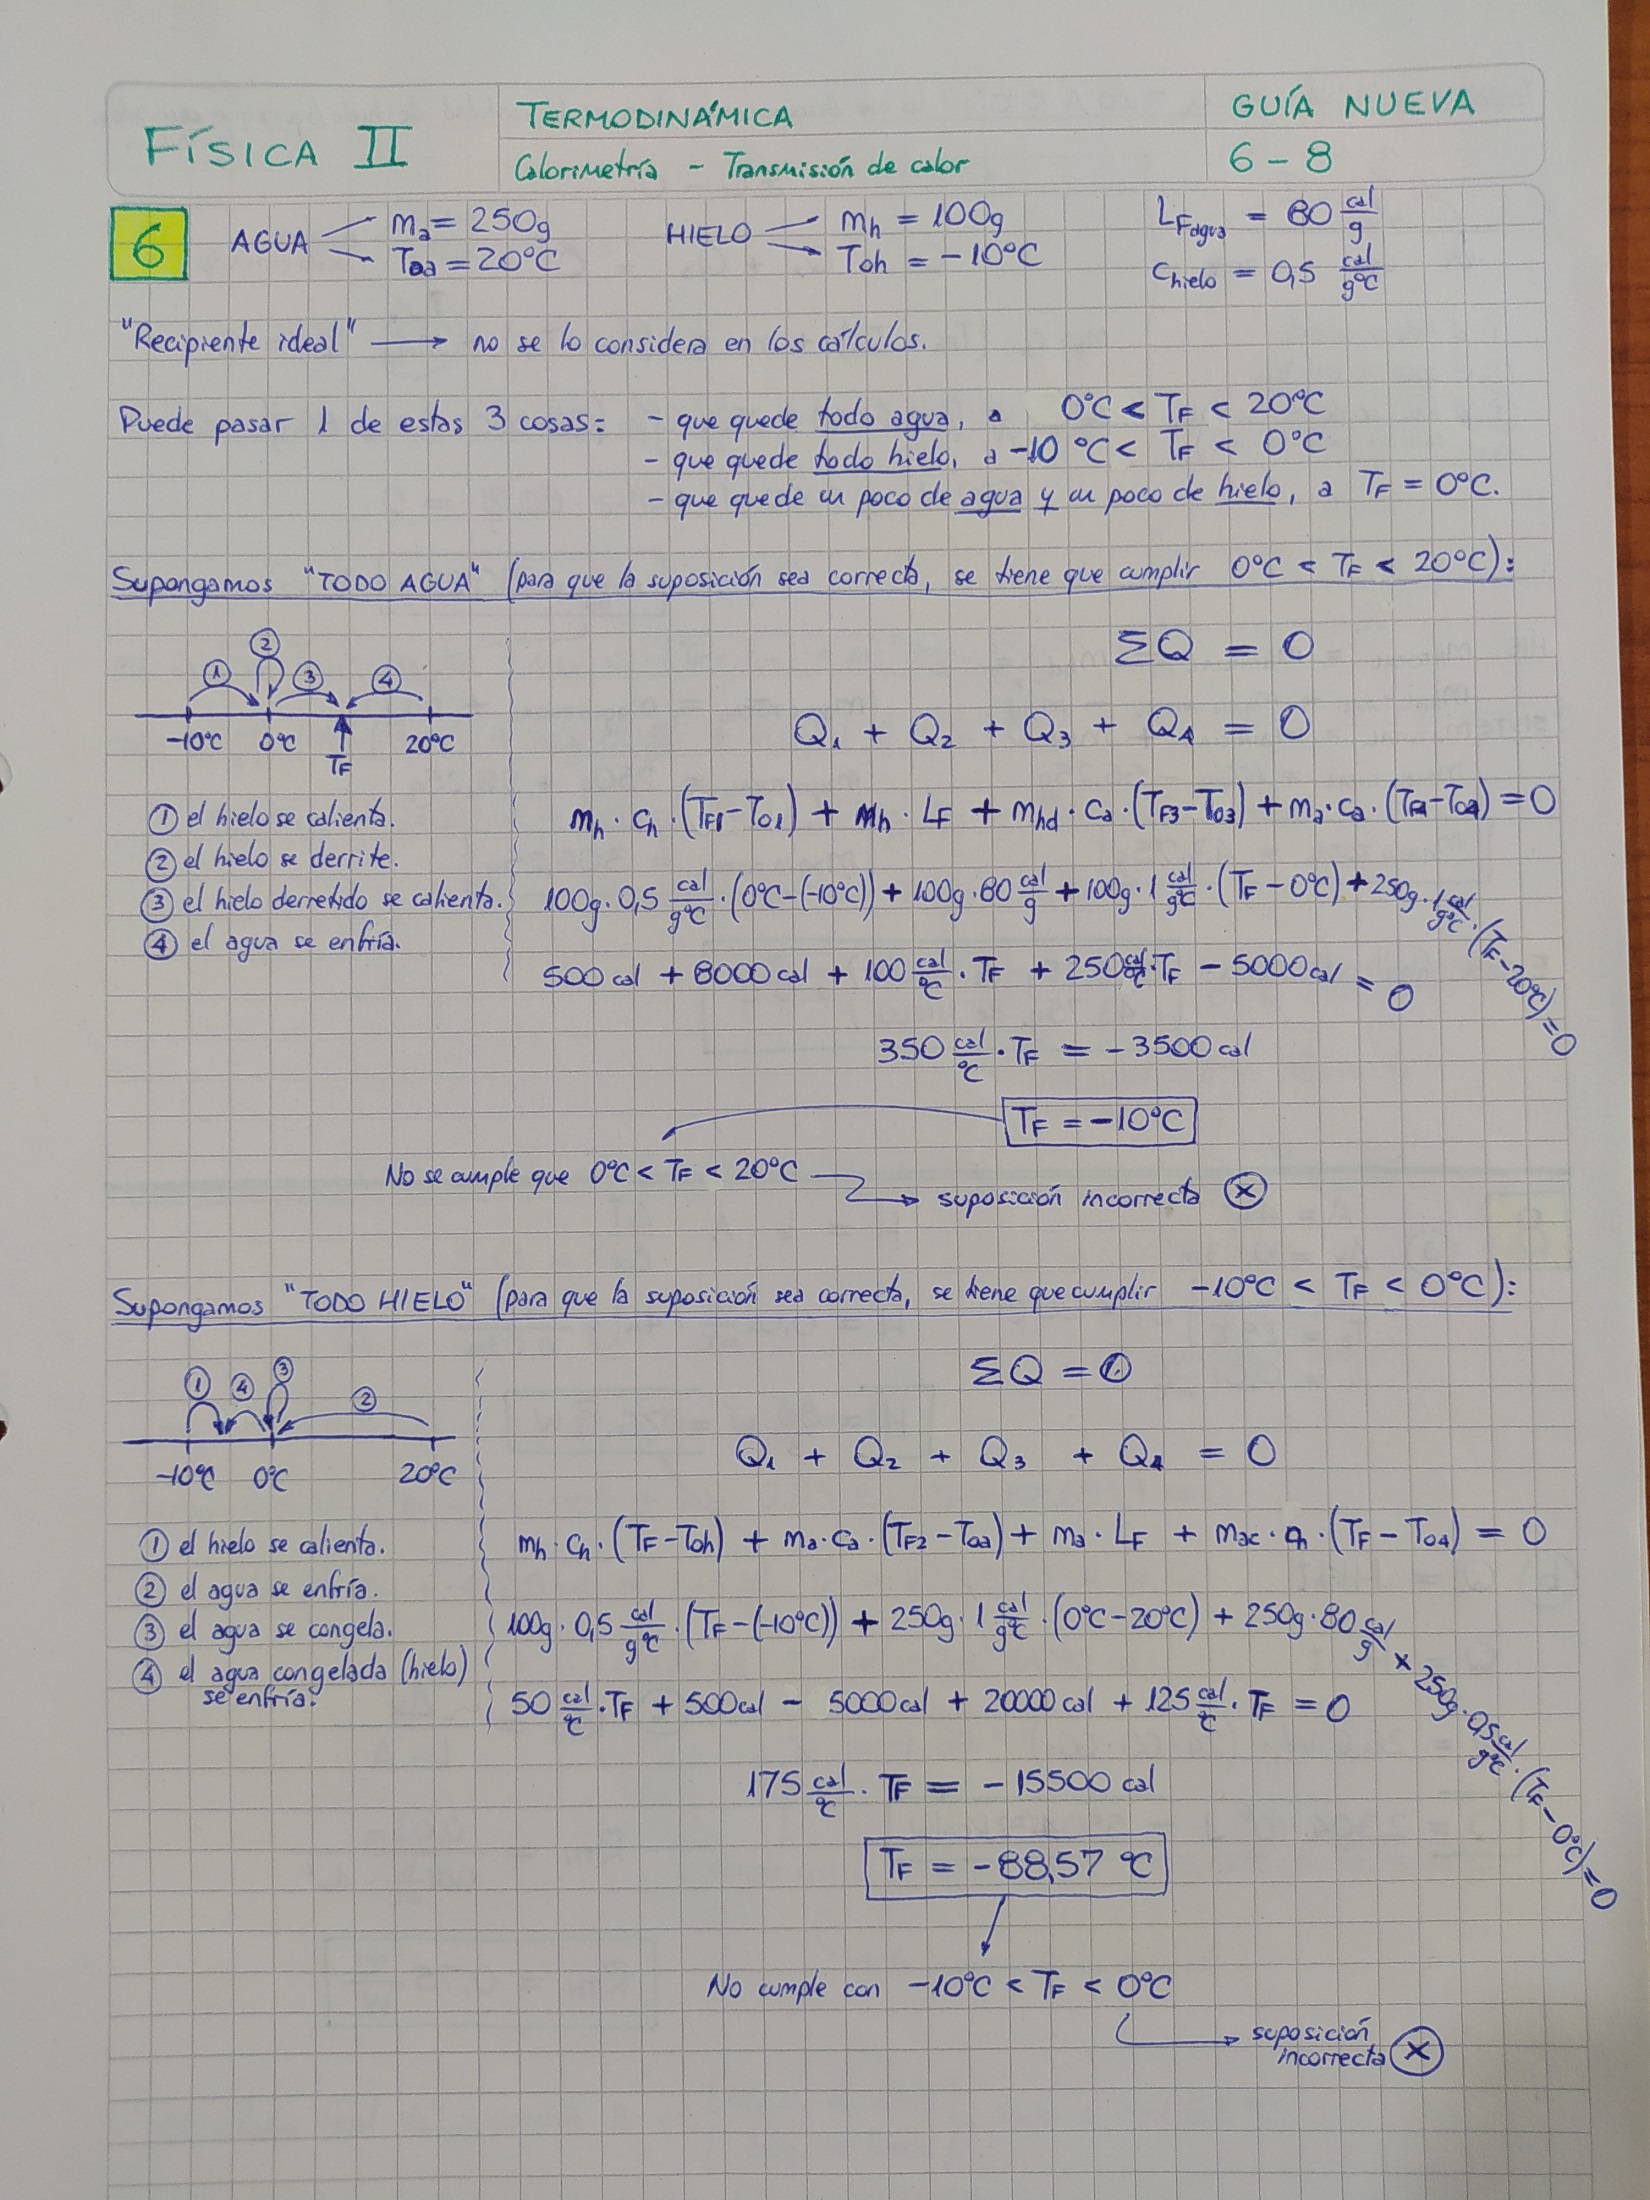 FÍSICA II
TERMODINÁMICA
Calorimetría - Transmisión de calor
GUÍA NUEVA
6-8
6
AGUA
ma = 250g
Toa = 20°C
HIELO
mh = 100g
Toh = -10°C
LF agua = 80 cal/g
Chielo = 0,5 cal/g°C
"Recipiente ideal" → no se lo considera en los cálculos.
Puede pasar 1 de estas 3 cosas: - que quede todo agua, a 0°C < TF < 20°C
- que quede todo hielo, a -10°C < TF < 0°C
- que quede un poco de agua y un poco de hielo, a TF = 0°C.
Supongamos "TODO AGUA" (para que la suposición sea correcta, se tiene que cumplir 0°C < TF < 20°C):
① ② ③ ④
-10°C 0°C TF 20°C
① el hielo se calienta.
② el hielo se derrite.
③ el hielo derretido se calienta.
④ el agua se enfría.
ΣQ = 0
Q1 + Q2 + Q3 + Q4 = 0
mh · ch · (TF1 - To1) + mh · LF + mhd · ca · (TF3 - To3) + ma · ca · (TF4 - To4) = 0
100g · 0,5 cal/g°C · (0°C - (-10°C)) + 100g · 80 cal/g + 100g · 1 cal/g°C · (TF - 0°C) + 250g · 1 cal/g°C · (TF - 20°C) = 0
500 cal + 8000 cal + 100 cal/°C · TF + 250 cal/°C · TF - 5000 cal = 0
350 cal/°C · TF = -3500 cal
TF = -10°C
No se cumple que 0°C < TF < 20°C
→ suposición incorrecta ⓧ
Supongamos "TODO HIELO" (para que la suposición sea correcta, se tiene que cumplir -10°C < TF < 0°C):
① ④ ③ ②
-10°C 0°C 20°C
① el hielo se calienta.
② el agua se enfría.
③ el agua se congela.
④ el agua congelada (hielo)
se enfría.
ΣQ = 0
Q1 + Q2 + Q3 + Q4 = 0
mh · ch · (TF - Toh) + ma · ca · (TF2 - Toa) + ma · LF + mac · ch · (TF - To4) = 0
100g · 0,5 cal/g°C · (TF - (-10°C)) + 250g · 1 cal/g°C · (0°C - 20°C) + 250g · 80 cal/g + 250g · 0,5 cal/g°C · (TF - 0°C) = 0
50 cal/°C · TF + 500 cal - 5000 cal + 20000 cal + 125 cal/°C · TF = 0
175 cal/°C · TF = -15500 cal
TF = -88,57 °C
No cumple con -10°C < TF < 0°C
→ suposición
incorrecta ⓧ